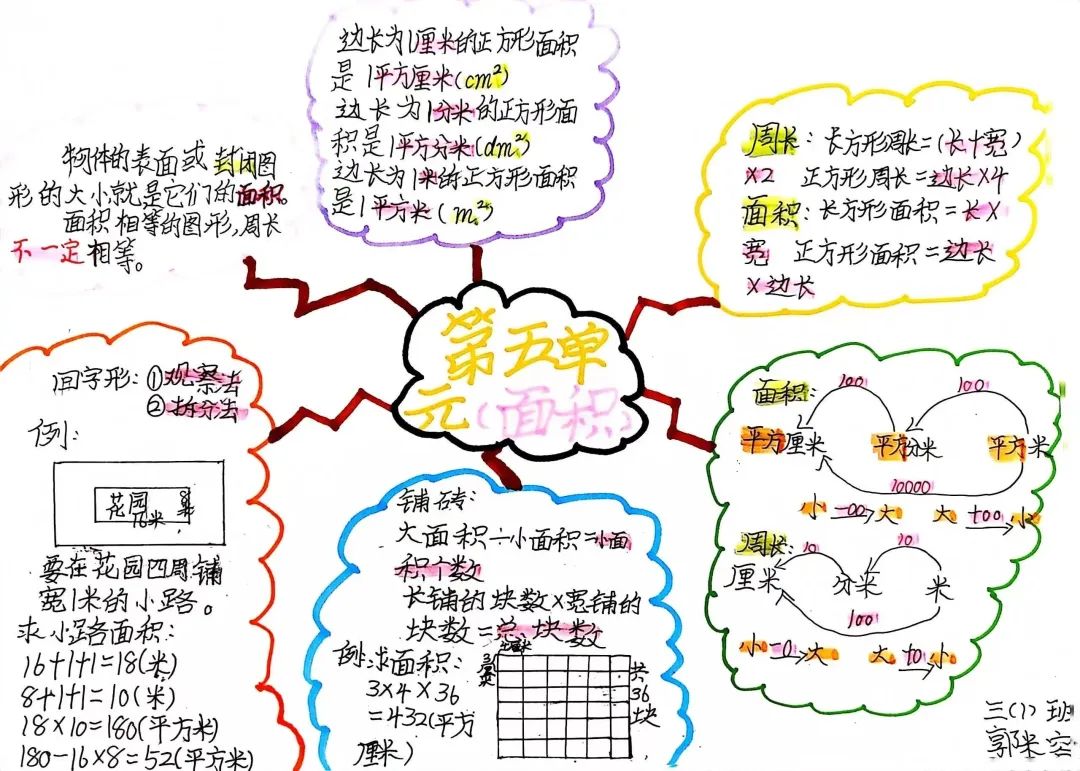 第五单
元(面积)
物体的表面或封闭图
形的大小就是它们的面积。
面积相等的图形,周长
不一定相等。
边长为1厘米的正方形面积
是1平方厘米(cm²)
边长为1分米的正方形面
积是1平方分米(dm²)
边长为1米的正方形面积
是1平方米(m²)
周长:长方形周长=(长+宽)
×2 正方形周长=边长×4
面积:长方形面积=长×
宽 正方形面积=边长
×边长
回字形:①观察法
②拆分法
例:
花园
16米
8米
要在花园四周铺
宽1米的小路。
求小路面积:
16+1+1=18(米)
8+1+1=10(米)
18×10=180(平方米)
180-16×8=52(平方米)
铺砖:
大面积÷小面积=小面
积个数
长铺的块数×宽铺的
块数=总块数
例:求面积:
3×4×36
=432(平方
厘米)
共
36
块
面积:
100 100
平方厘米 平方分米 平方米
10000
小 大 大 小
周长:
10 10
厘米 分米 米
100
小 大 大 小
三(1)班